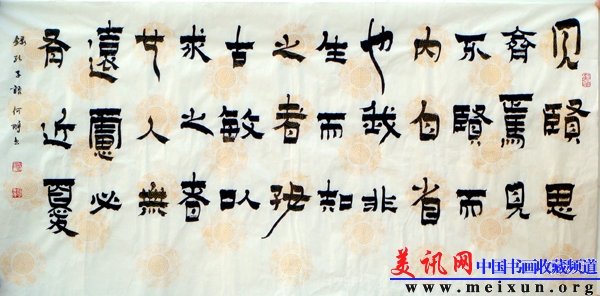 見賢思
齊焉見
不賢而
内自省
也我非
生而知
之者好
古敏以
求之者
也人無
遠慮必
有近憂
錄孔子語 何
美讯网 中国书画收藏频道
www.meixun.org